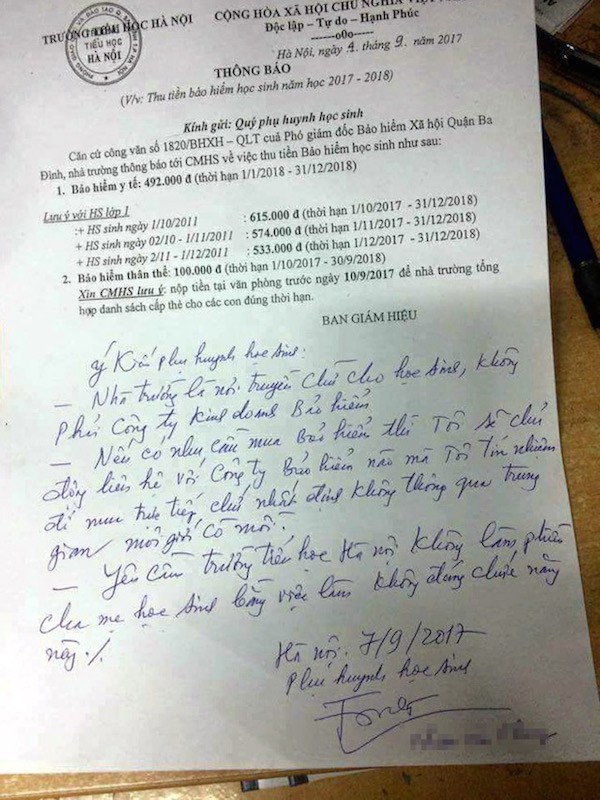 TRƯỜNG TIỂU HỌC HÀ NỘI
CỘNG HÒA XÃ HỘI CHỦ NGHĨA VIỆT
Độc lập – Tự do – Hạnh Phúc
------o0o------
TIỂU HỌC
HÀ NỘI
Hà Nội, ngày 4 tháng 9 năm 2017
THÔNG BÁO
(V/v: Thu tiền bảo hiểm học sinh năm học 2017 - 2018)
Kính gửi: Quý phụ huynh học sinh
Căn cứ công văn số 1820/BHXH – QLT cuả Phó giám đốc Bảo hiểm Xã hội Quận Ba
Đình, nhà trường thông báo tới CMHS về việc thu tiền Bảo hiểm học sinh như sau:
1. Bảo hiểm y tế: 492.000 đ (thời hạn 1/1/2018 - 31/12/2018)
Lưu ý với HS lớp 1
:+ HS sinh ngày 1/10/2011 : 615.000 đ (thời hạn 1/10/2017 - 31/12/2018)
+ HS sinh ngày 02/10 - 1/11/2011 : 574.000 đ (thời hạn 1/11/2017 - 31/12/2018)
+ HS sinh ngày 2/11 - 1/12/2011 : 533.000 đ (thời hạn 1/12/2017 - 31/12/2018)
2. Bảo hiểm thân thể: 100.000 đ (thời hạn 1/10/2017 - 30/9/2018)
Xin CMHS lưu ý: nộp tiền tại văn phòng trước ngày 10/9/2017 để nhà trường tổng
hợp danh sách cấp thẻ cho các con đúng thời hạn.
BAN GIÁM HIỆU
Ý Kiến phụ huynh học sinh:
– Nhà trường là nơi truyền chữ cho học sinh, không
phải Công ty kinh doanh Bảo hiểm
– Nếu có nhu cầu mua Bảo hiểm thì Tôi sẽ chủ
động liên hệ với Công ty Bảo hiểm nào mà Tôi tín nhiệm
để mua trực tiếp chứ nhất định không thông qua trung
gian môi giới cò mồi.
– Yêu cầu trường tiểu học Hà nội không làm phiền
cha mẹ học sinh bằng việc làm không đúng chức năng
này ./.
Hà nội. 7/9/2017
Phụ huynh học sinh